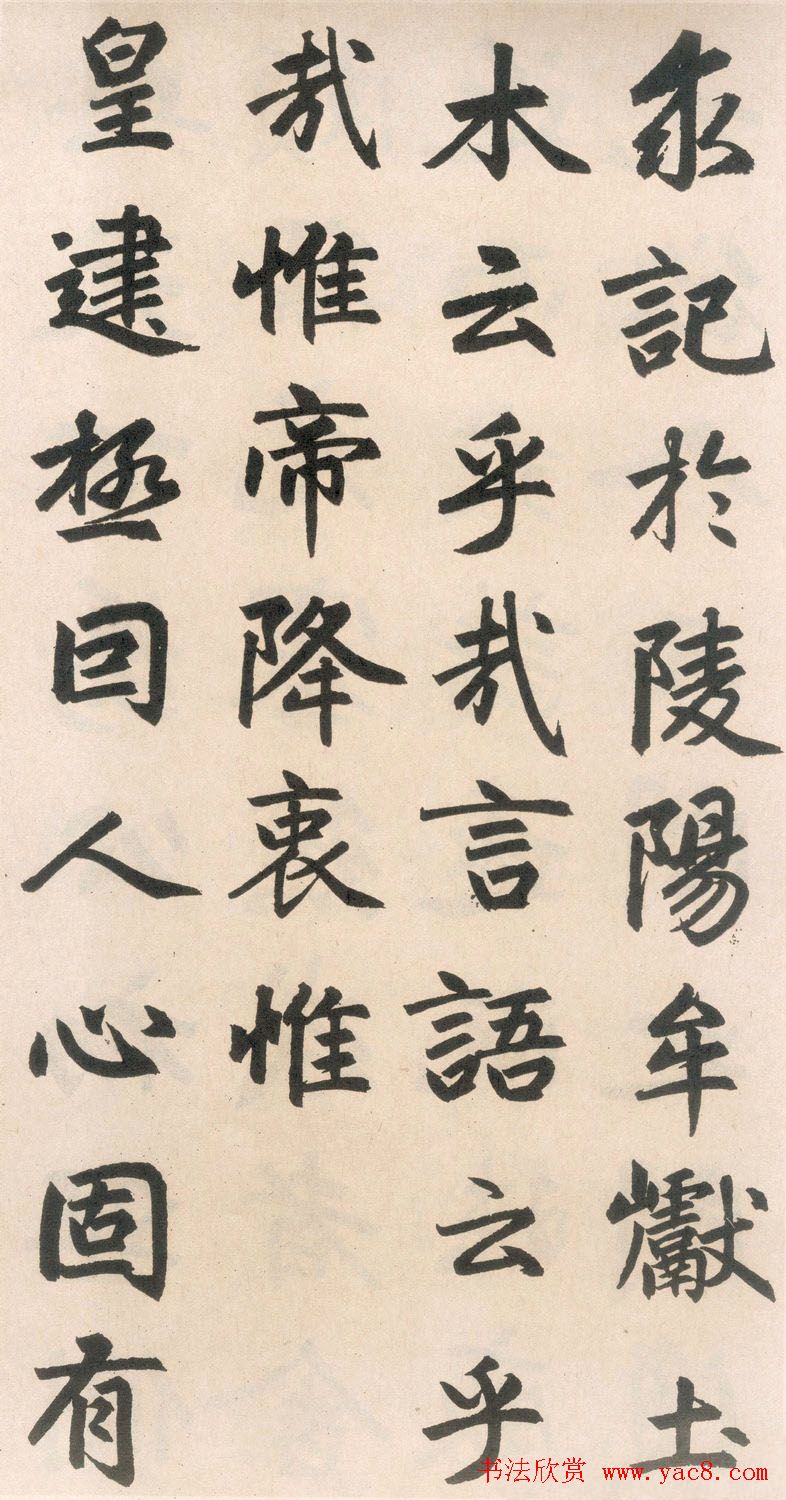 求記於陵陽牟巘土
木云乎哉言語云乎
哉惟帝降衷惟
皇建極因人心固有
书法欣赏 www.yac8.com